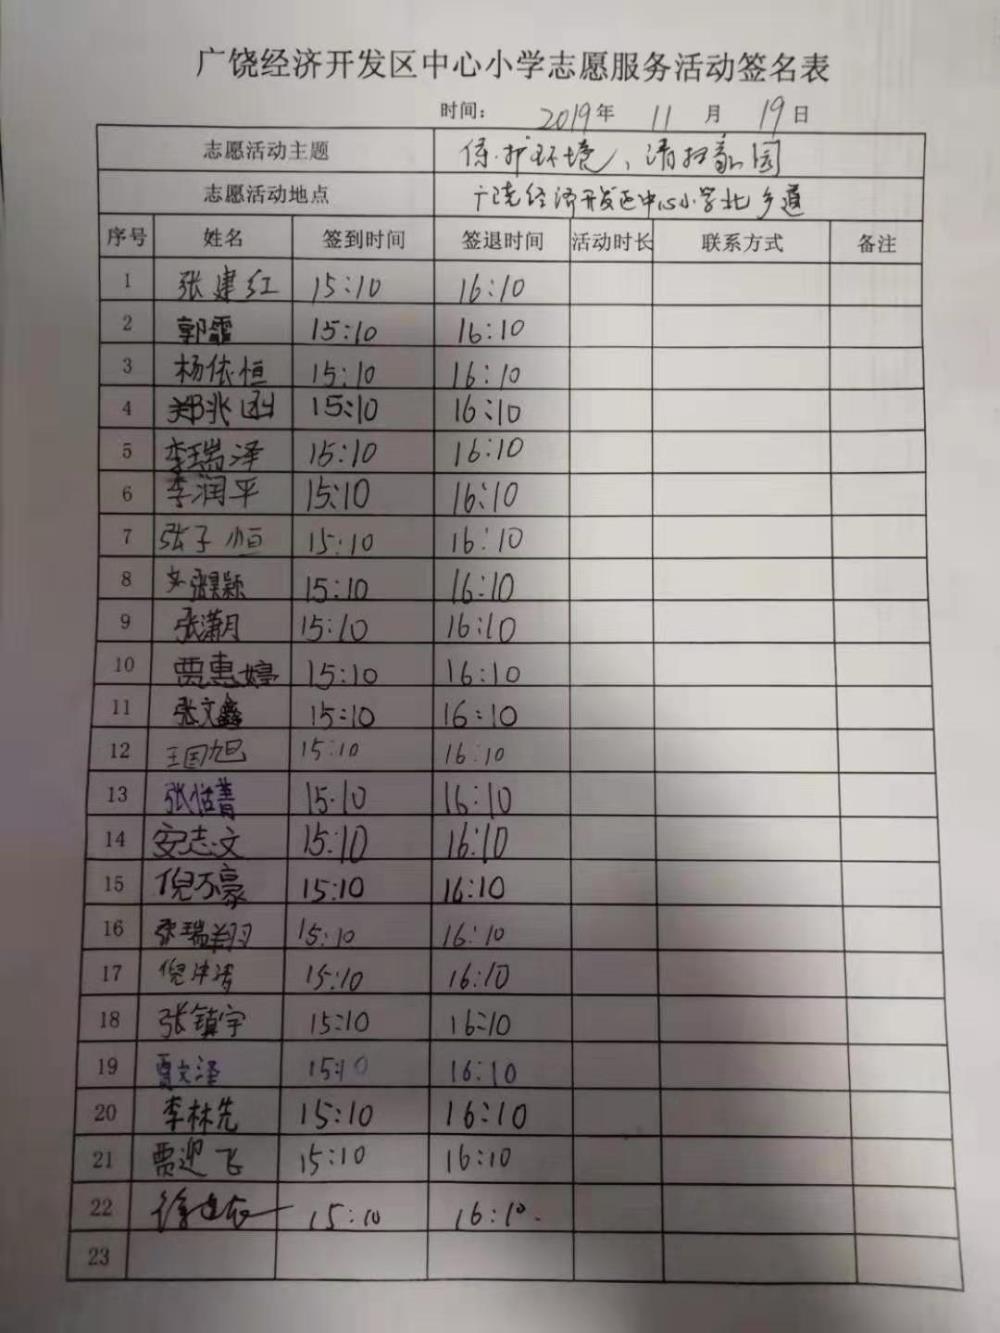 广饶经济开发区中心小学志愿服务活动签名表
时间: 2019年 11 月 19日
志愿活动主题 保护环境、清扫家园
志愿活动地点 广饶经济开发区中心小学北乡道
序号 姓名 签到时间 签退时间 活动时长 联系方式 备注
1 张建红 15:10 16:10
2 郭霏 15:10 16:10
3 杨依恒 15:10 16:10
4 郑兆函 15:10 16:10
5 李瑞泽 15:10 16:10
6 李润平 15:10 16:10
7 张子恒 15:10 16:10
8 15:10 16:10
9 张潇月 15:10 16:10
10 贾惠婷 15:10 16:10
11 张文鑫 15:10 16:10
12 王国旭 15:10 16:10
13 张恬菁 15:10 16:10
14 安志文 15:10 16:10
15 倪万豪 15:10 16:10
16 张瑞翔 15:10 16:10
17 15:10 16:10
18 张镇宇 15:10 16:10
19 贾文泽 15:10 16:10
20 李林先 15:10 16:10
21 贾迎飞 15:10 16:10
22 15:10 16:10.
23